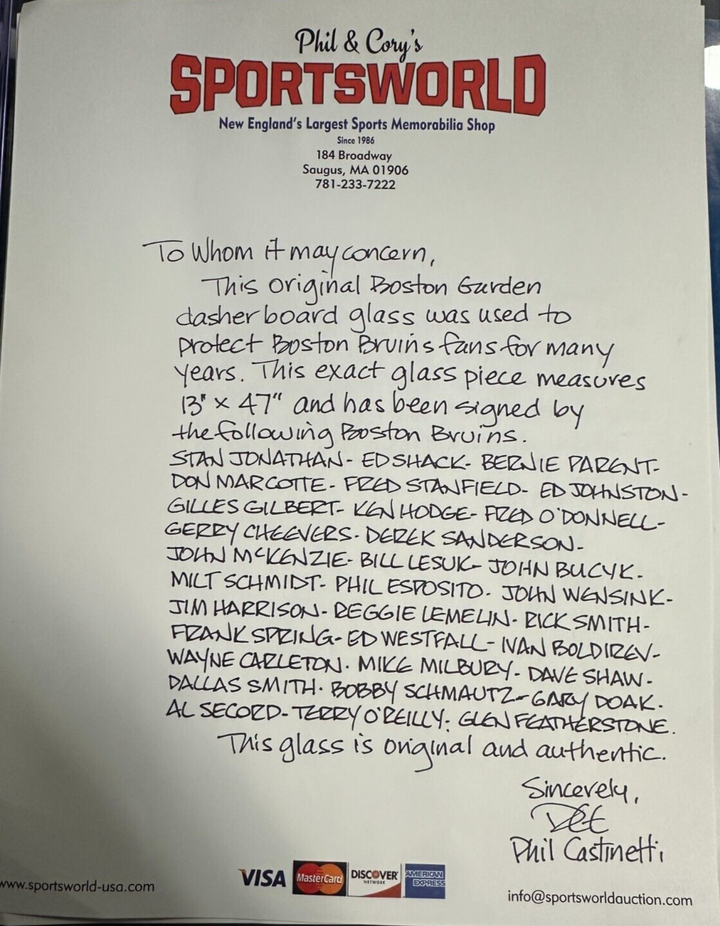 Phil & Cory's
SPORTSWORLD
New England's Largest Sports Memorabilia Shop
Since 1986
184 Broadway
Saugus, MA 01906
781-233-7222
To Whom it may concern,
This original Boston Garden
dasher board glass was used to
protect Boston Bruins fans for many
years. This exact glass piece measures
13" x 47" and has been signed by
the following Boston Bruins.
STAN JONATHAN- ED SHACK- BERNIE PARENT-
DON MARCOTTE- FRED STANFIELD- ED JOHNSTON-
GILLES GILBERT- KEN HODGE- FRED O'DONNELL-
GERRY CHEEVERS- DEREK SANDERSON-
JOHN McKENZIE- BILL LESUK- JOHN BUCYK-
MILT SCHMIDT- PHIL ESPOSITO- JOHN WENSINK-
JIM HARRISON- REGGIE LEMELIN- RICK SMITH-
FRANK SPRING- ED WESTFALL- IVAN BOLDIREV-
WAYNE CARLETON- MIKE MILBURY- DAVE SHAW-
DALLAS SMITH- BOBBY SCHMAUTZ- GARY DOAK-
AL SECORD- TERRY O'REILLY- GLEN FEATHERSTONE.
This glass is original and authentic.
Sincerely,
Phil Castinetti
www.sportsworld-usa.com
VISA MasterCard DISCOVER NETWORK AMERICAN EXPRESS
info@sportsworldauction.com